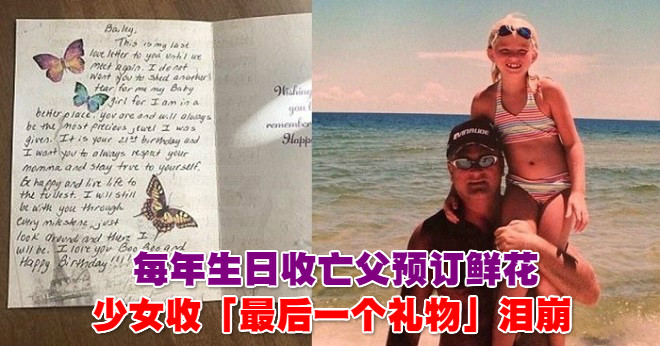 Bailey,
This is my last
love letter to you until we
meet again. I do not
want you to shed another
tear for me my Baby
girl for I am in a
better place. you are and will always
be the most precious jewel I was
given. It is your 21st birthday and
I want you to always respect your
momma and stay true to yourself.
Be happy and live life to
the fullest. I will still
be with you through
every milestone, just
look around and there I
will be. I love you Boo Boo and
Happy Birthday!!!
Wishing
you
remember
Happ
EVINRUDE
每年生日收亡父预订鲜花
少女收「最后一个礼物」泪崩